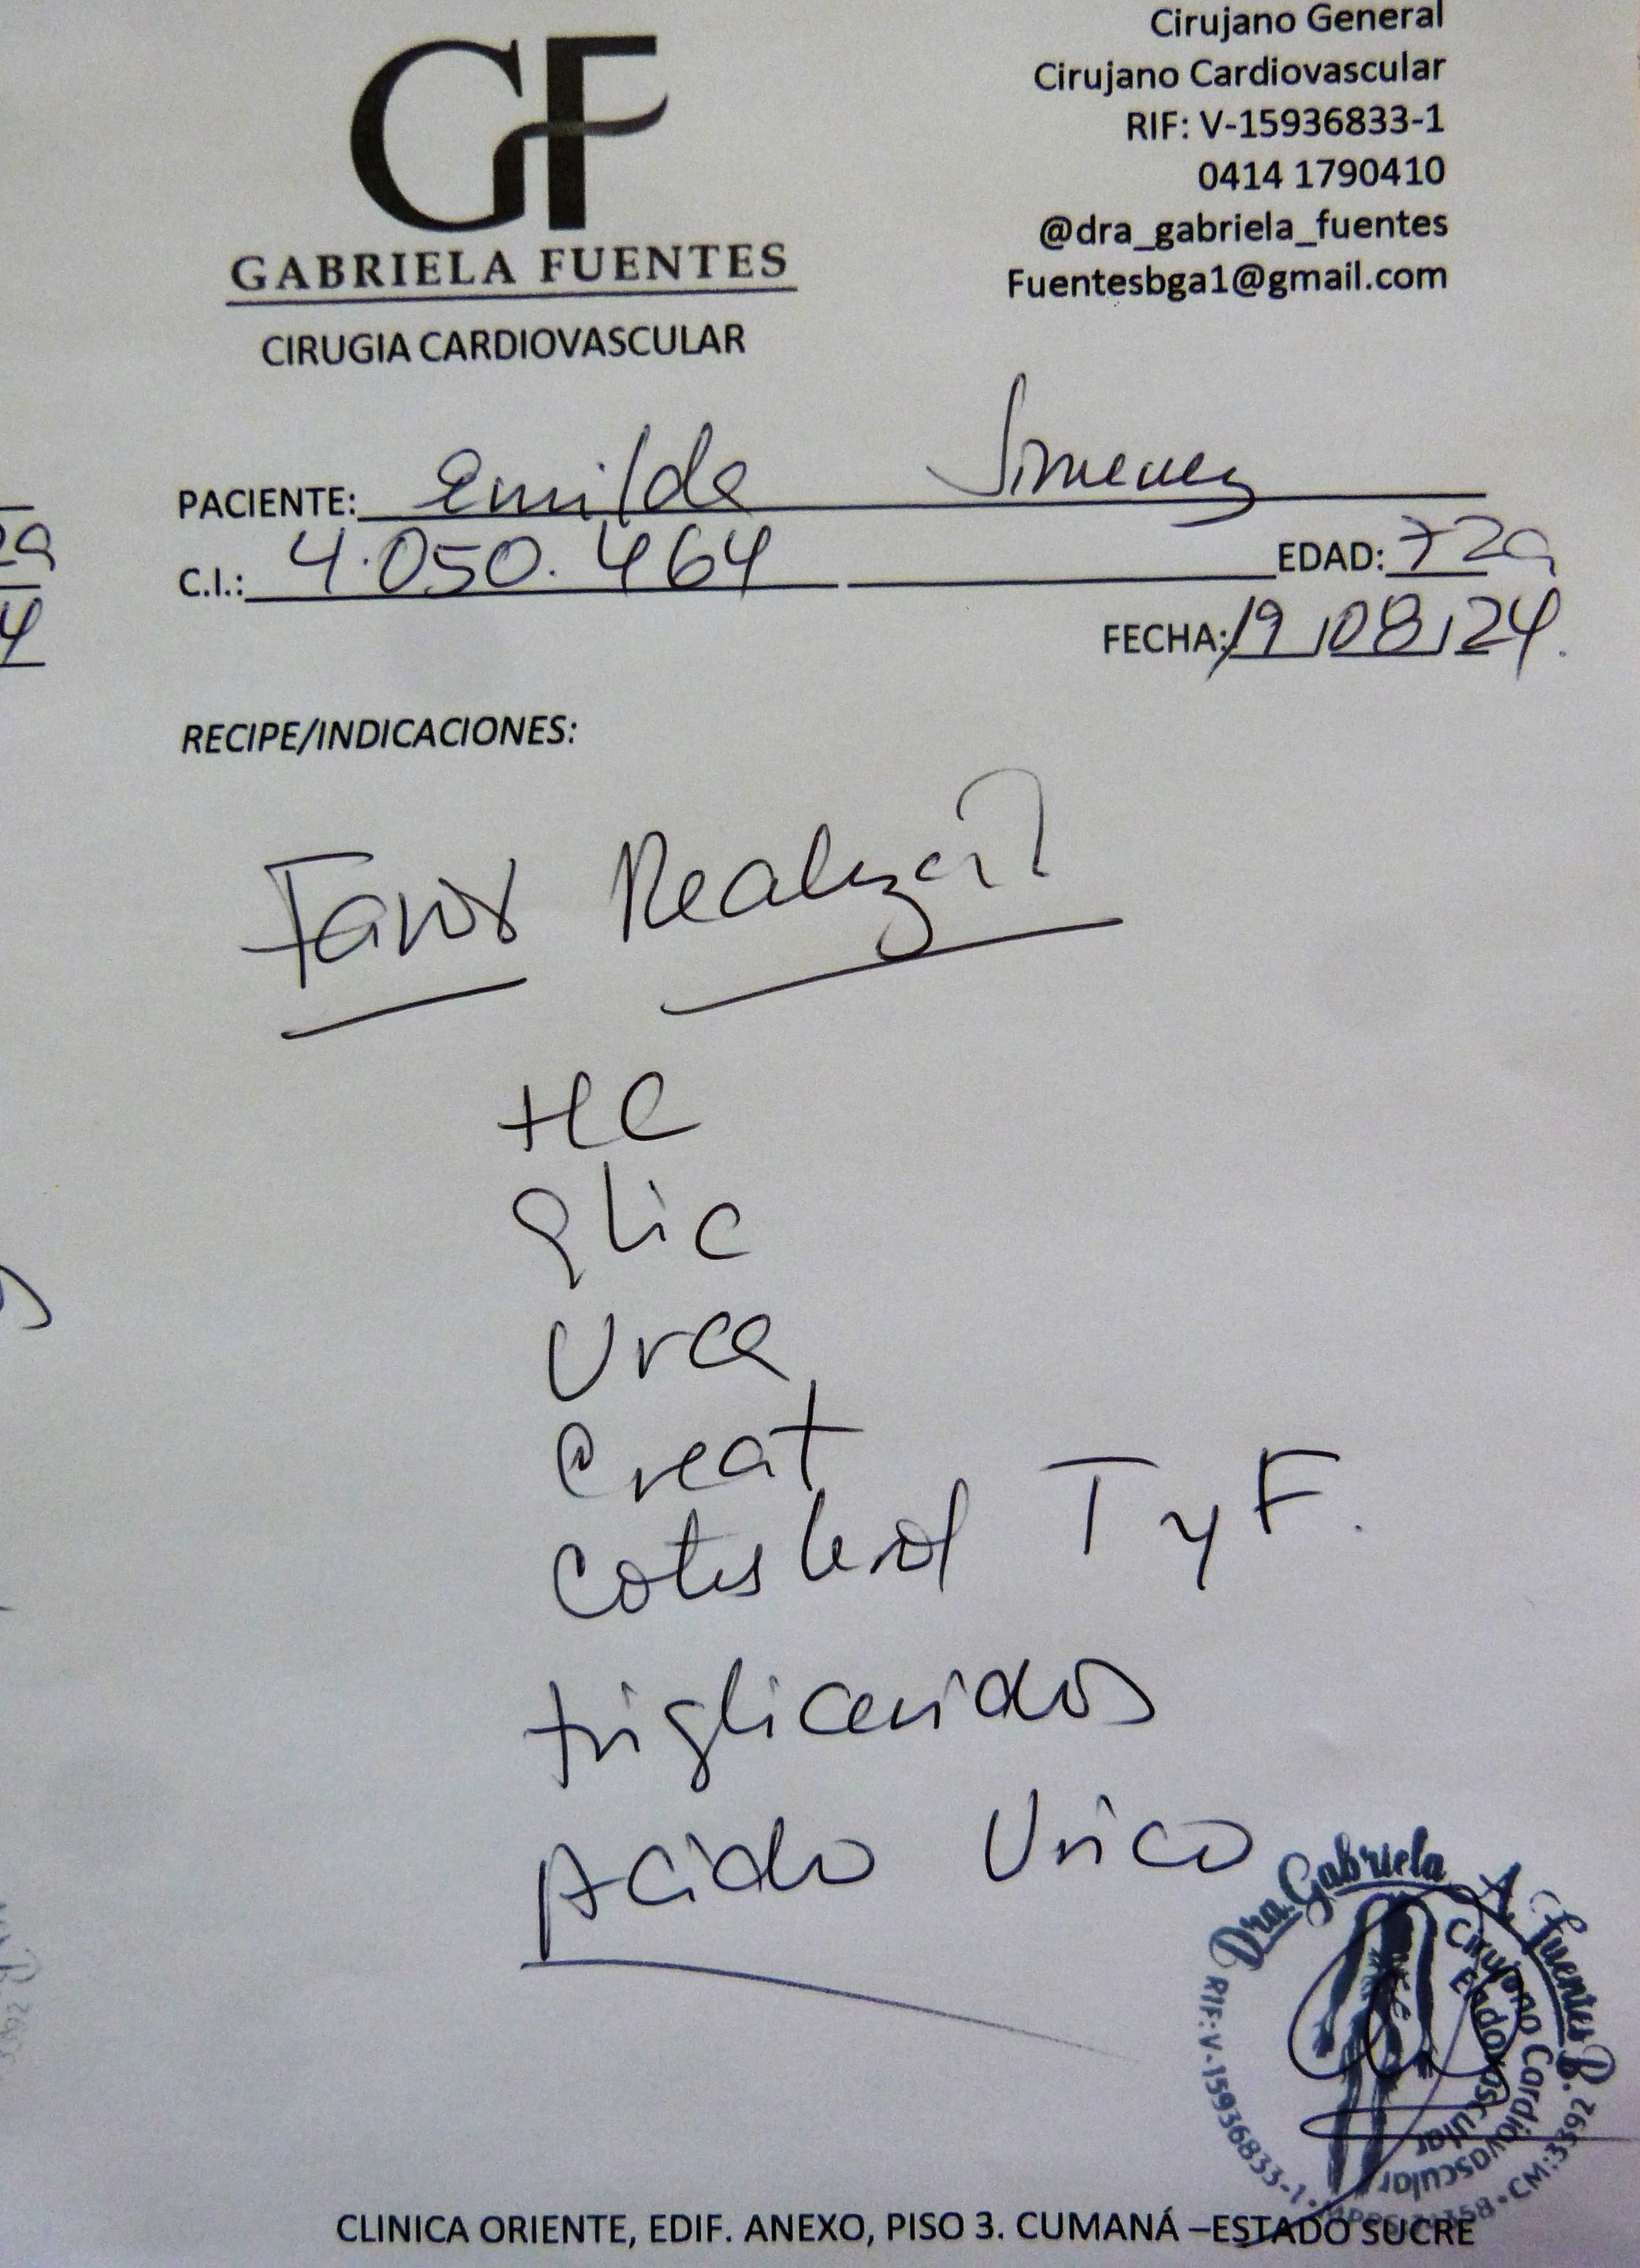 GF
GABRIELA FUENTES
CIRUGIA CARDIOVASCULAR
Cirujano General
Cirujano Cardiovascular
RIF: V-15936833-1
0414 1790410
@dra_gabriela_fuentes
Fuentesbga1@gmail.com
PACIENTE: Emilda Jimenez
C.I.: 4.050.464 EDAD: 72a
FECHA: 19/08/24.
RECIPE/INDICACIONES:
Favor Realizar
HC
glic
Urea
Creat
Coteslerol T y F.
trigliceridos
Acido Urico
Dra. Gabriela A. Fuentes B.
Cirujano Cardiovascular
Endovascular
RIF: V-15936833-1 CM:3392
CLINICA ORIENTE, EDIF. ANEXO, PISO 3. CUMANÁ –ESTADO SUCRE